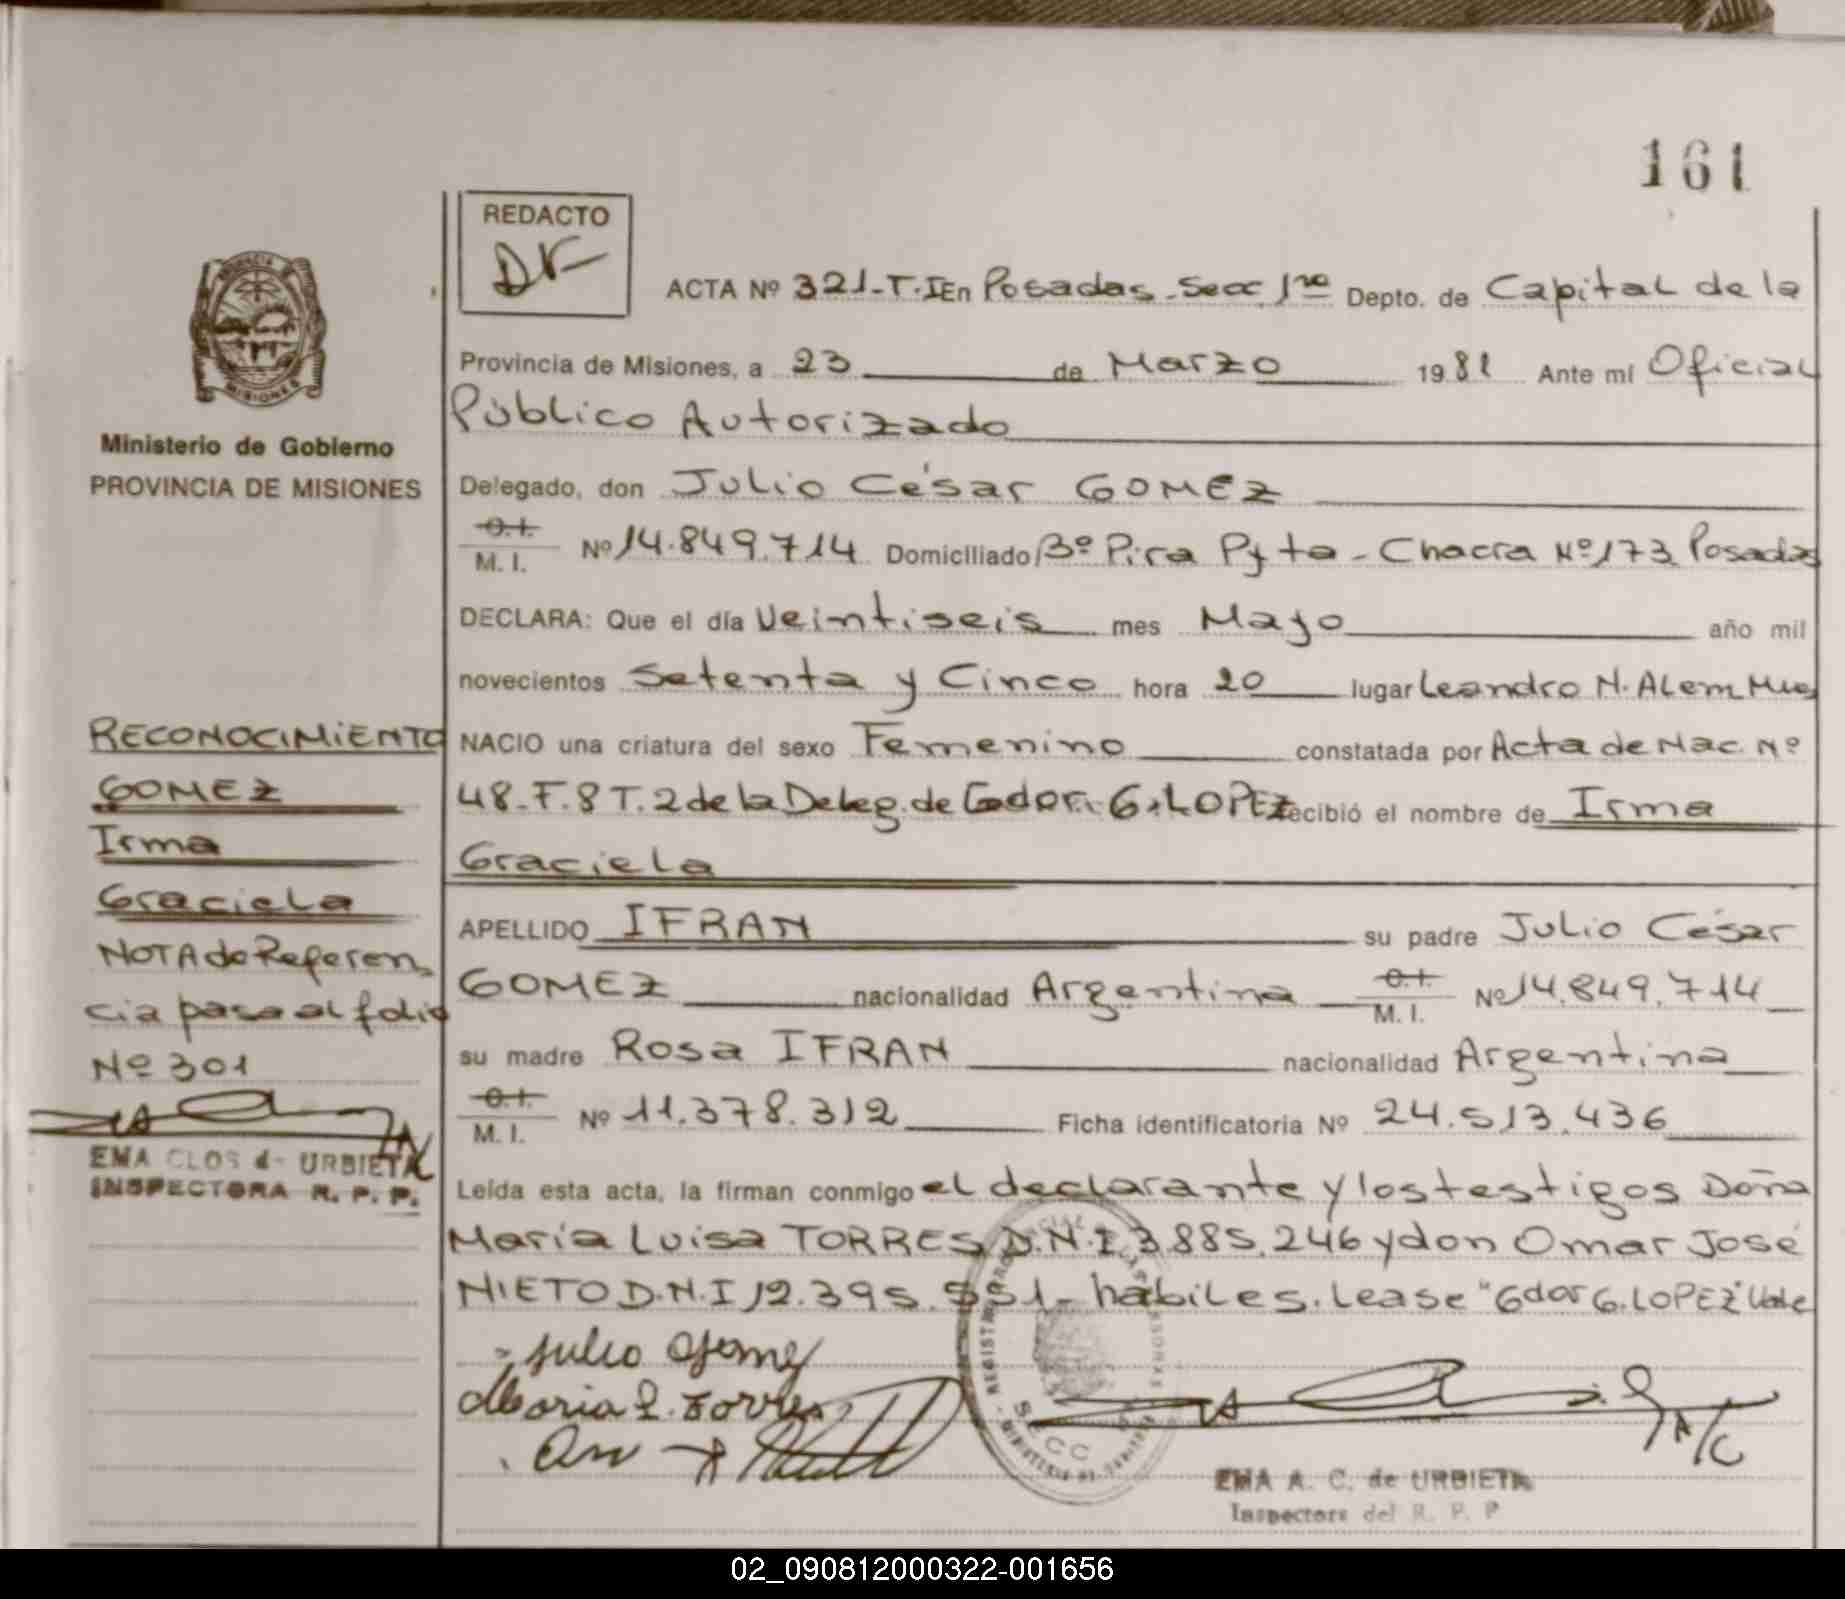 161
REDACTO
ACTA Nº 321-T.I En Posadas-Secc. 1ra Depto. de Capital de la
Provincia de Misiones, a 23 de Marzo 1981 Ante mí Oficial
Público Autorizado
Ministerio de Gobierno
PROVINCIA DE MISIONES
Delegado, don Julio César GOMEZ
O.I.
M. I. Nº 14.849.714 Domiciliado Bº Pira Pyta - Chacra Nº 173 Posadas
DECLARA: Que el día Veintiseis mes Mayo año mil
novecientos Setenta y Cinco hora 20 lugar Leandro N. Alem Mnes
NACIO una criatura del sexo Femenino constatada por Acta de Nac. Nº
48-F.8 T.2 de la Deleg. de Gdor. G. LOPEZ recibió el nombre de Irma
Graciela
APELLIDO IFRAN su padre Julio César
GOMEZ nacionalidad Argentina O.I. M. I. Nº 14.849.714
su madre Rosa IFRAN nacionalidad Argentina
O.I.
M. I. Nº 11.378.312 Ficha identificatoria Nº 24.513.436
Leída esta acta, la firman conmigo el declarante y los testigos Doña
María Luisa TORRES D.N.I 3.885.246 y don Omar José
NIETO D.N.I 12.395.551- habiles. Lease "Gdor G. LOPEZ" Vale
RECONOCIMIENTO
GOMEZ
Irma
Graciela
NOTA de Referen
cia pasa al folio
Nº 301
EMA CLOS d- URBIETA
INSPECTORA R. P. P.
Julio Gomez
Maria L. Torres
SECC
EMA A. C. de URBIETA
Inspectora del R. P. P
02_090812000322-001656